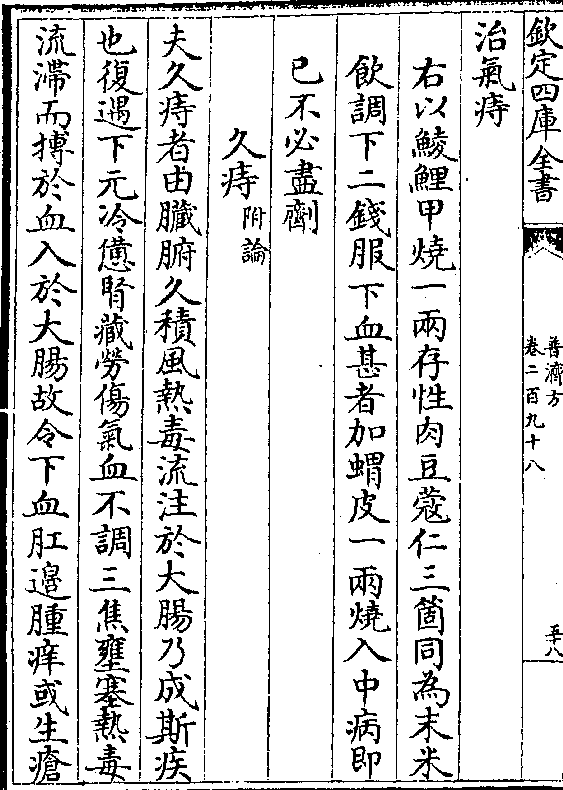 欽定四庫全書
普濟方
卷二百九十八
五十八
治氣痔
右以鯪鯉甲燒一兩存性肉豆蔻仁三箇同為末米
飲調下二錢服下血甚者加蝟皮一兩燒入中病即
已不必盡劑
久痔附論
夫久痔者由臟腑久積風熱毒流注於大腸乃成斯疾
也復遇下元冷憊腎藏勞傷氣血不調三焦壅塞熱毒
流滯而摶於血入於大腸故令下血肛邊腫痒或生瘡